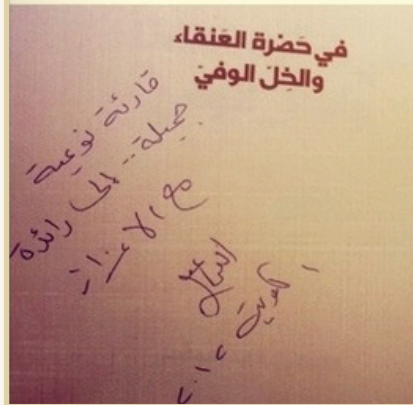 في حَضرة العَنقاء
والخِلّ الوفيّ
قارئة نوعية
جميلة.. إلى رائدة
مع الاعتزاز
اسماعيل
الكويت ٢٠١٢